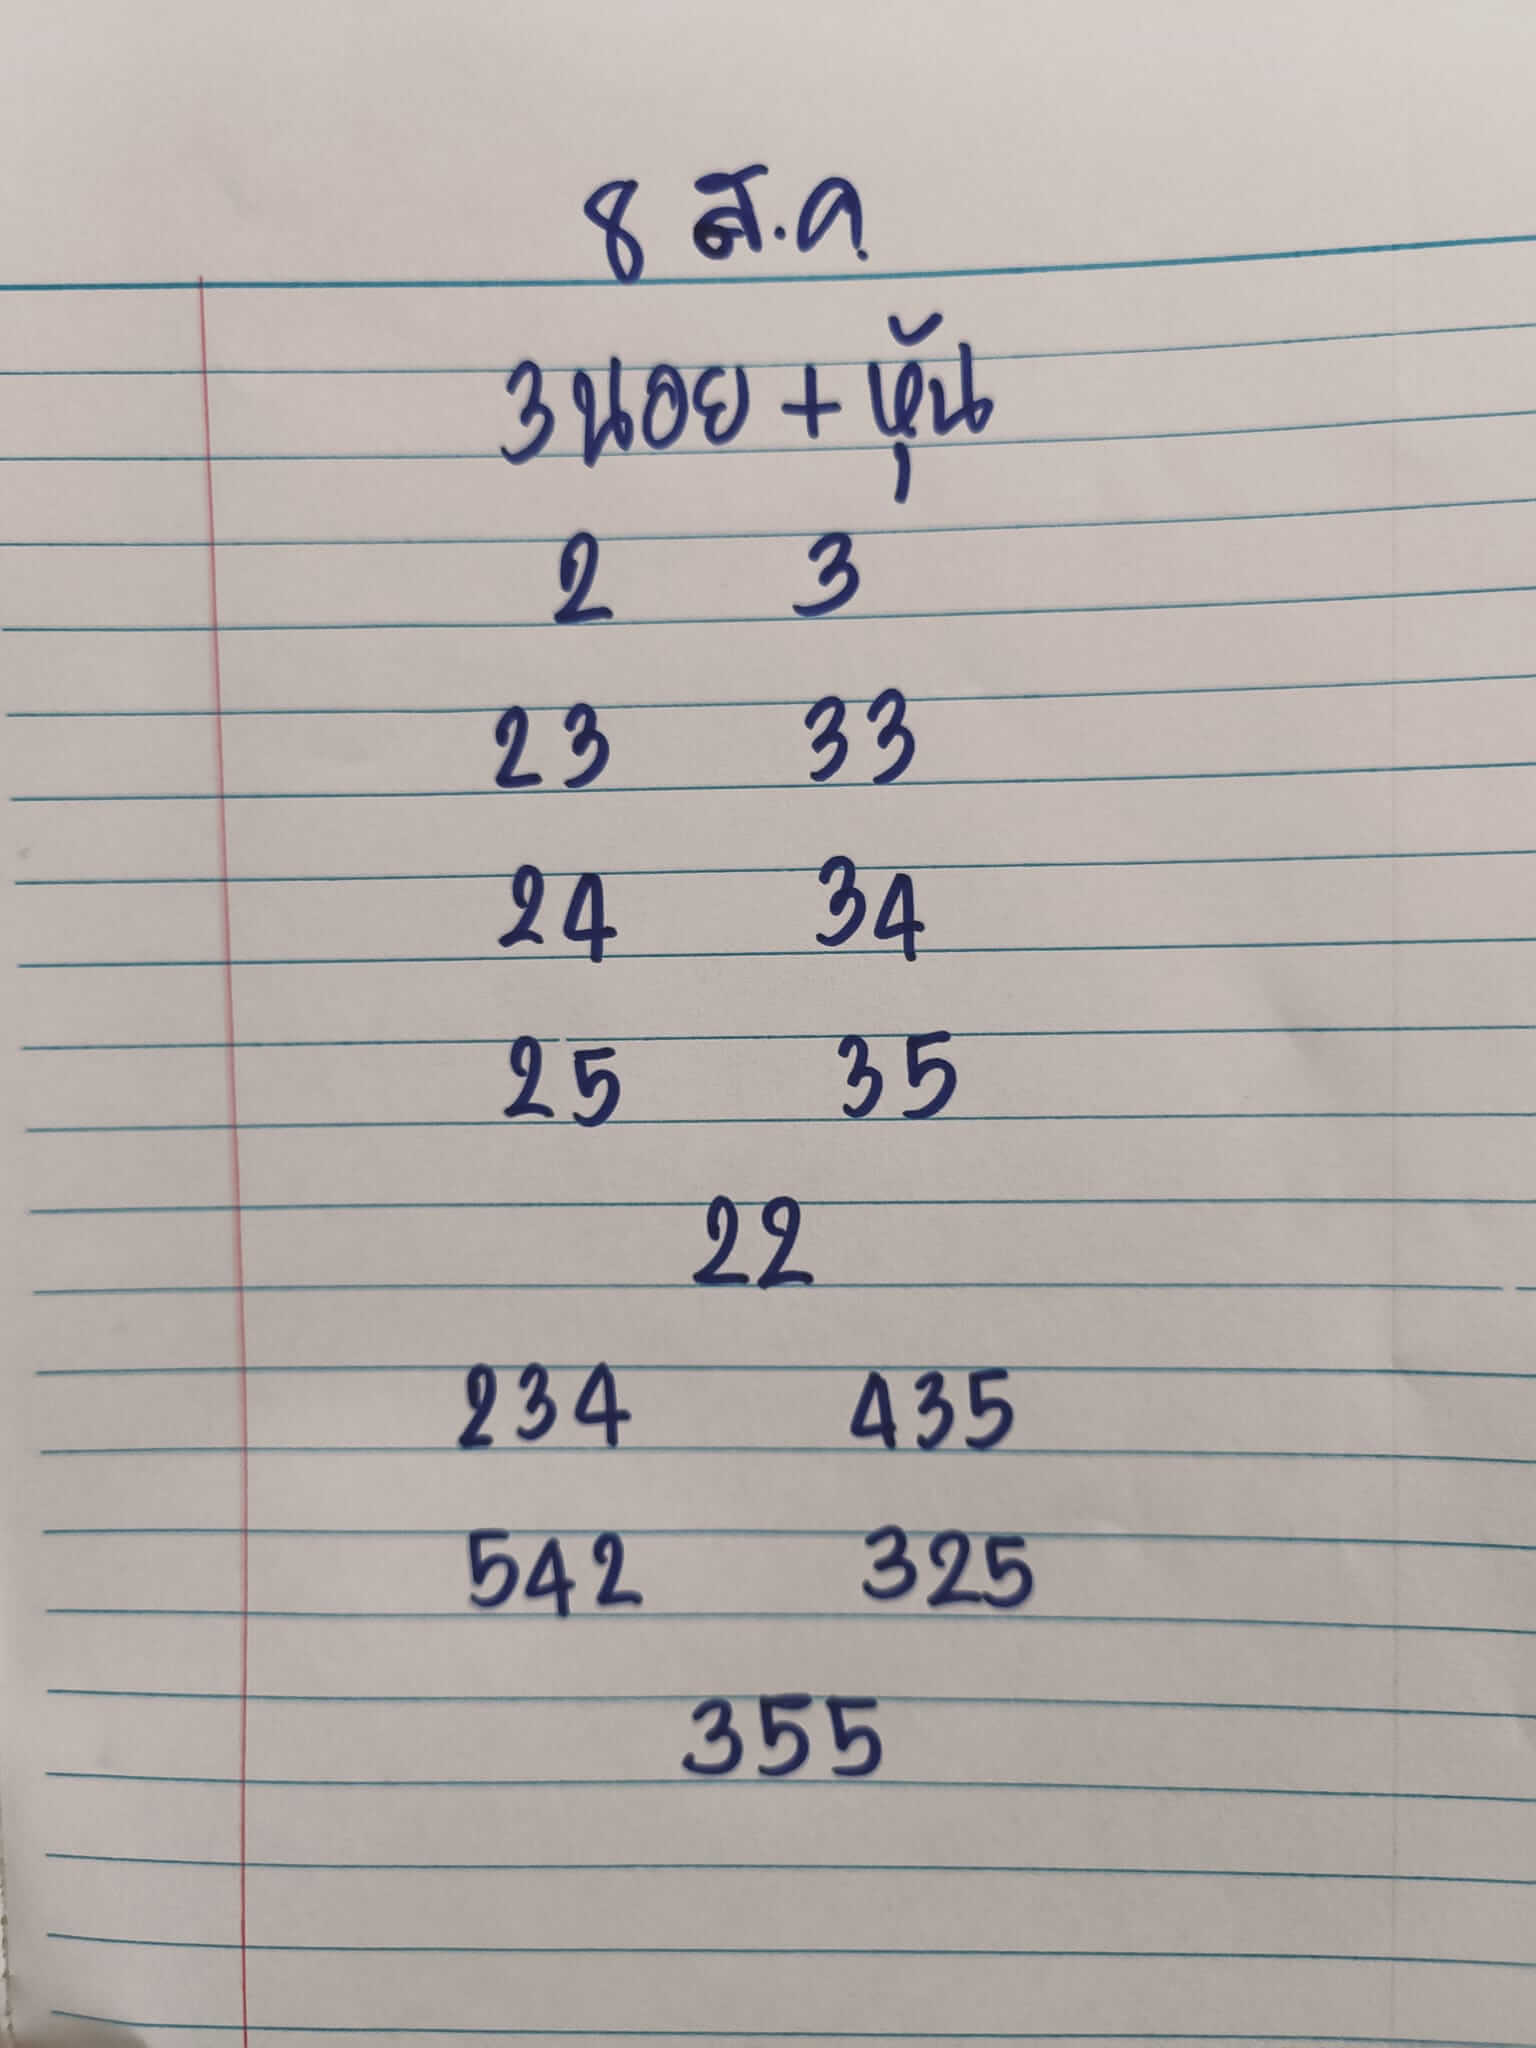 8 ส.ค.
3 นอย + หุ้น
2 3
23 33
24 34
25 35
22
234 435
542 325
355